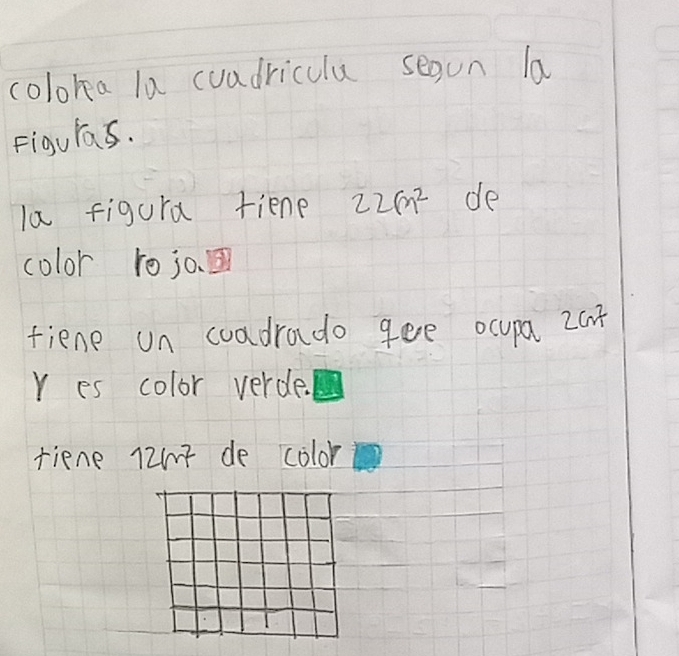 colorea la cuadricula segun la
Figuras.
la figura tiene 22cm² de
color rojo.
tiene un cuadrado que ocupa 2cm²
Y es color verde.
tiene 12cm² de color